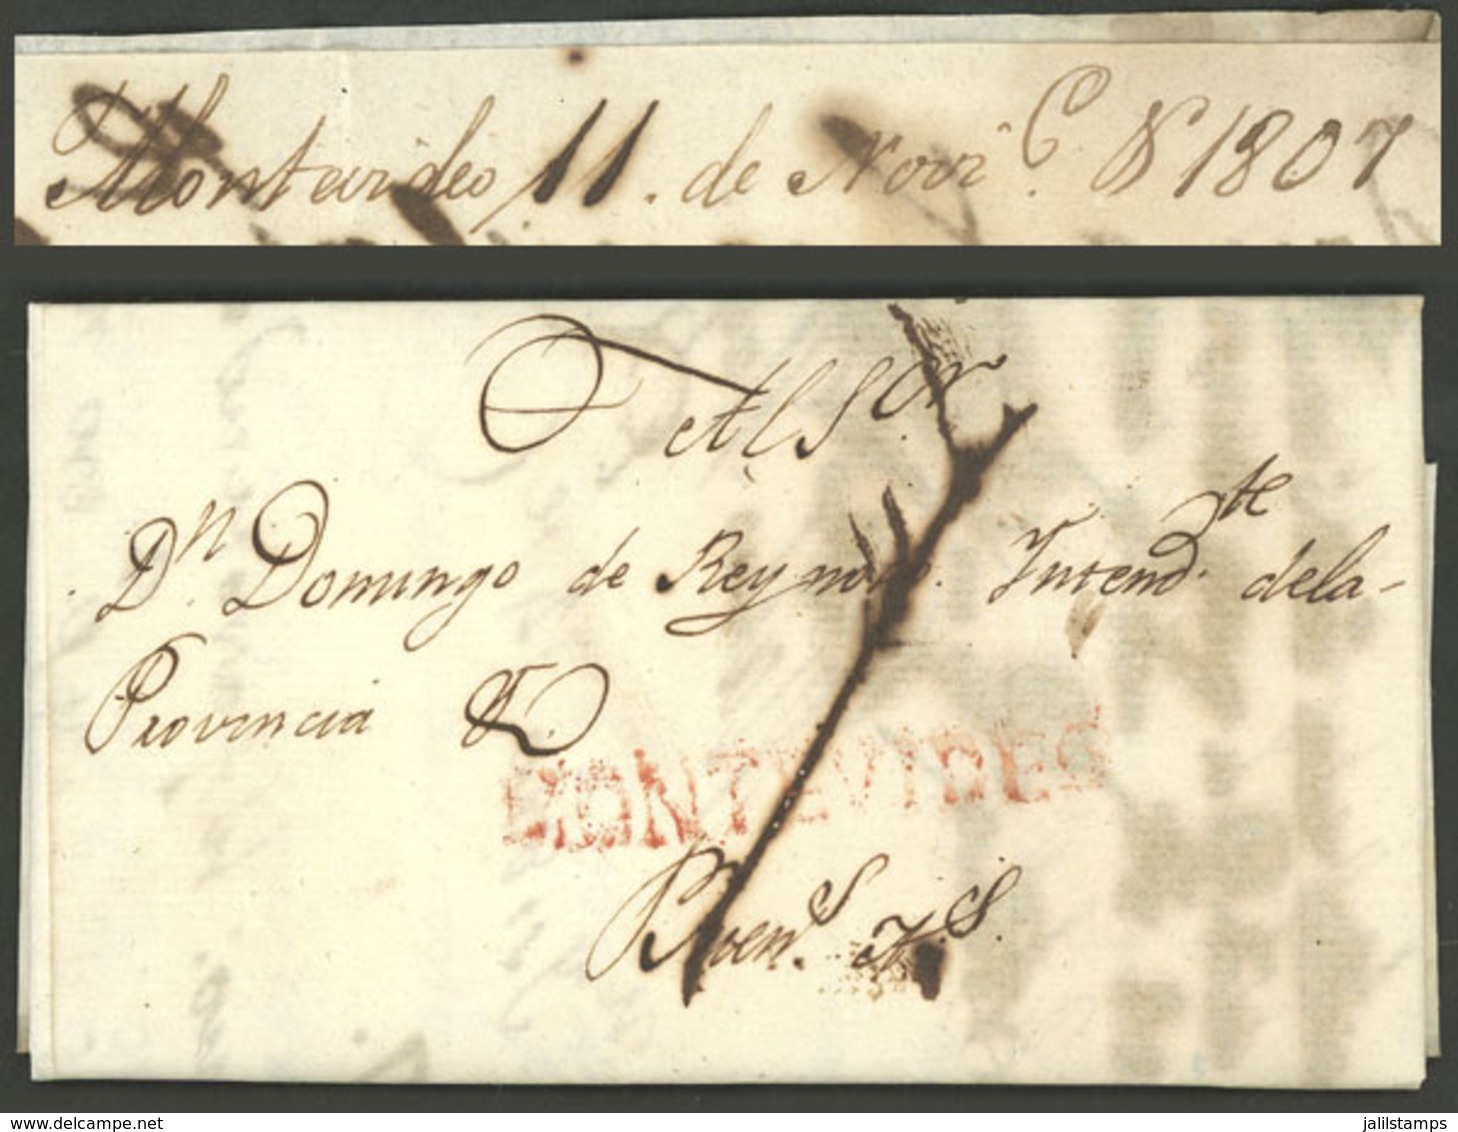 Montevideo 11. de Novi.e de 1807
Al Sor.
Dn. Domingo de Reynoso. Yntend.te dela
Provincia &.
MONTEVIDEO
Buens. As.
www.delcampe.net
jalilstamps